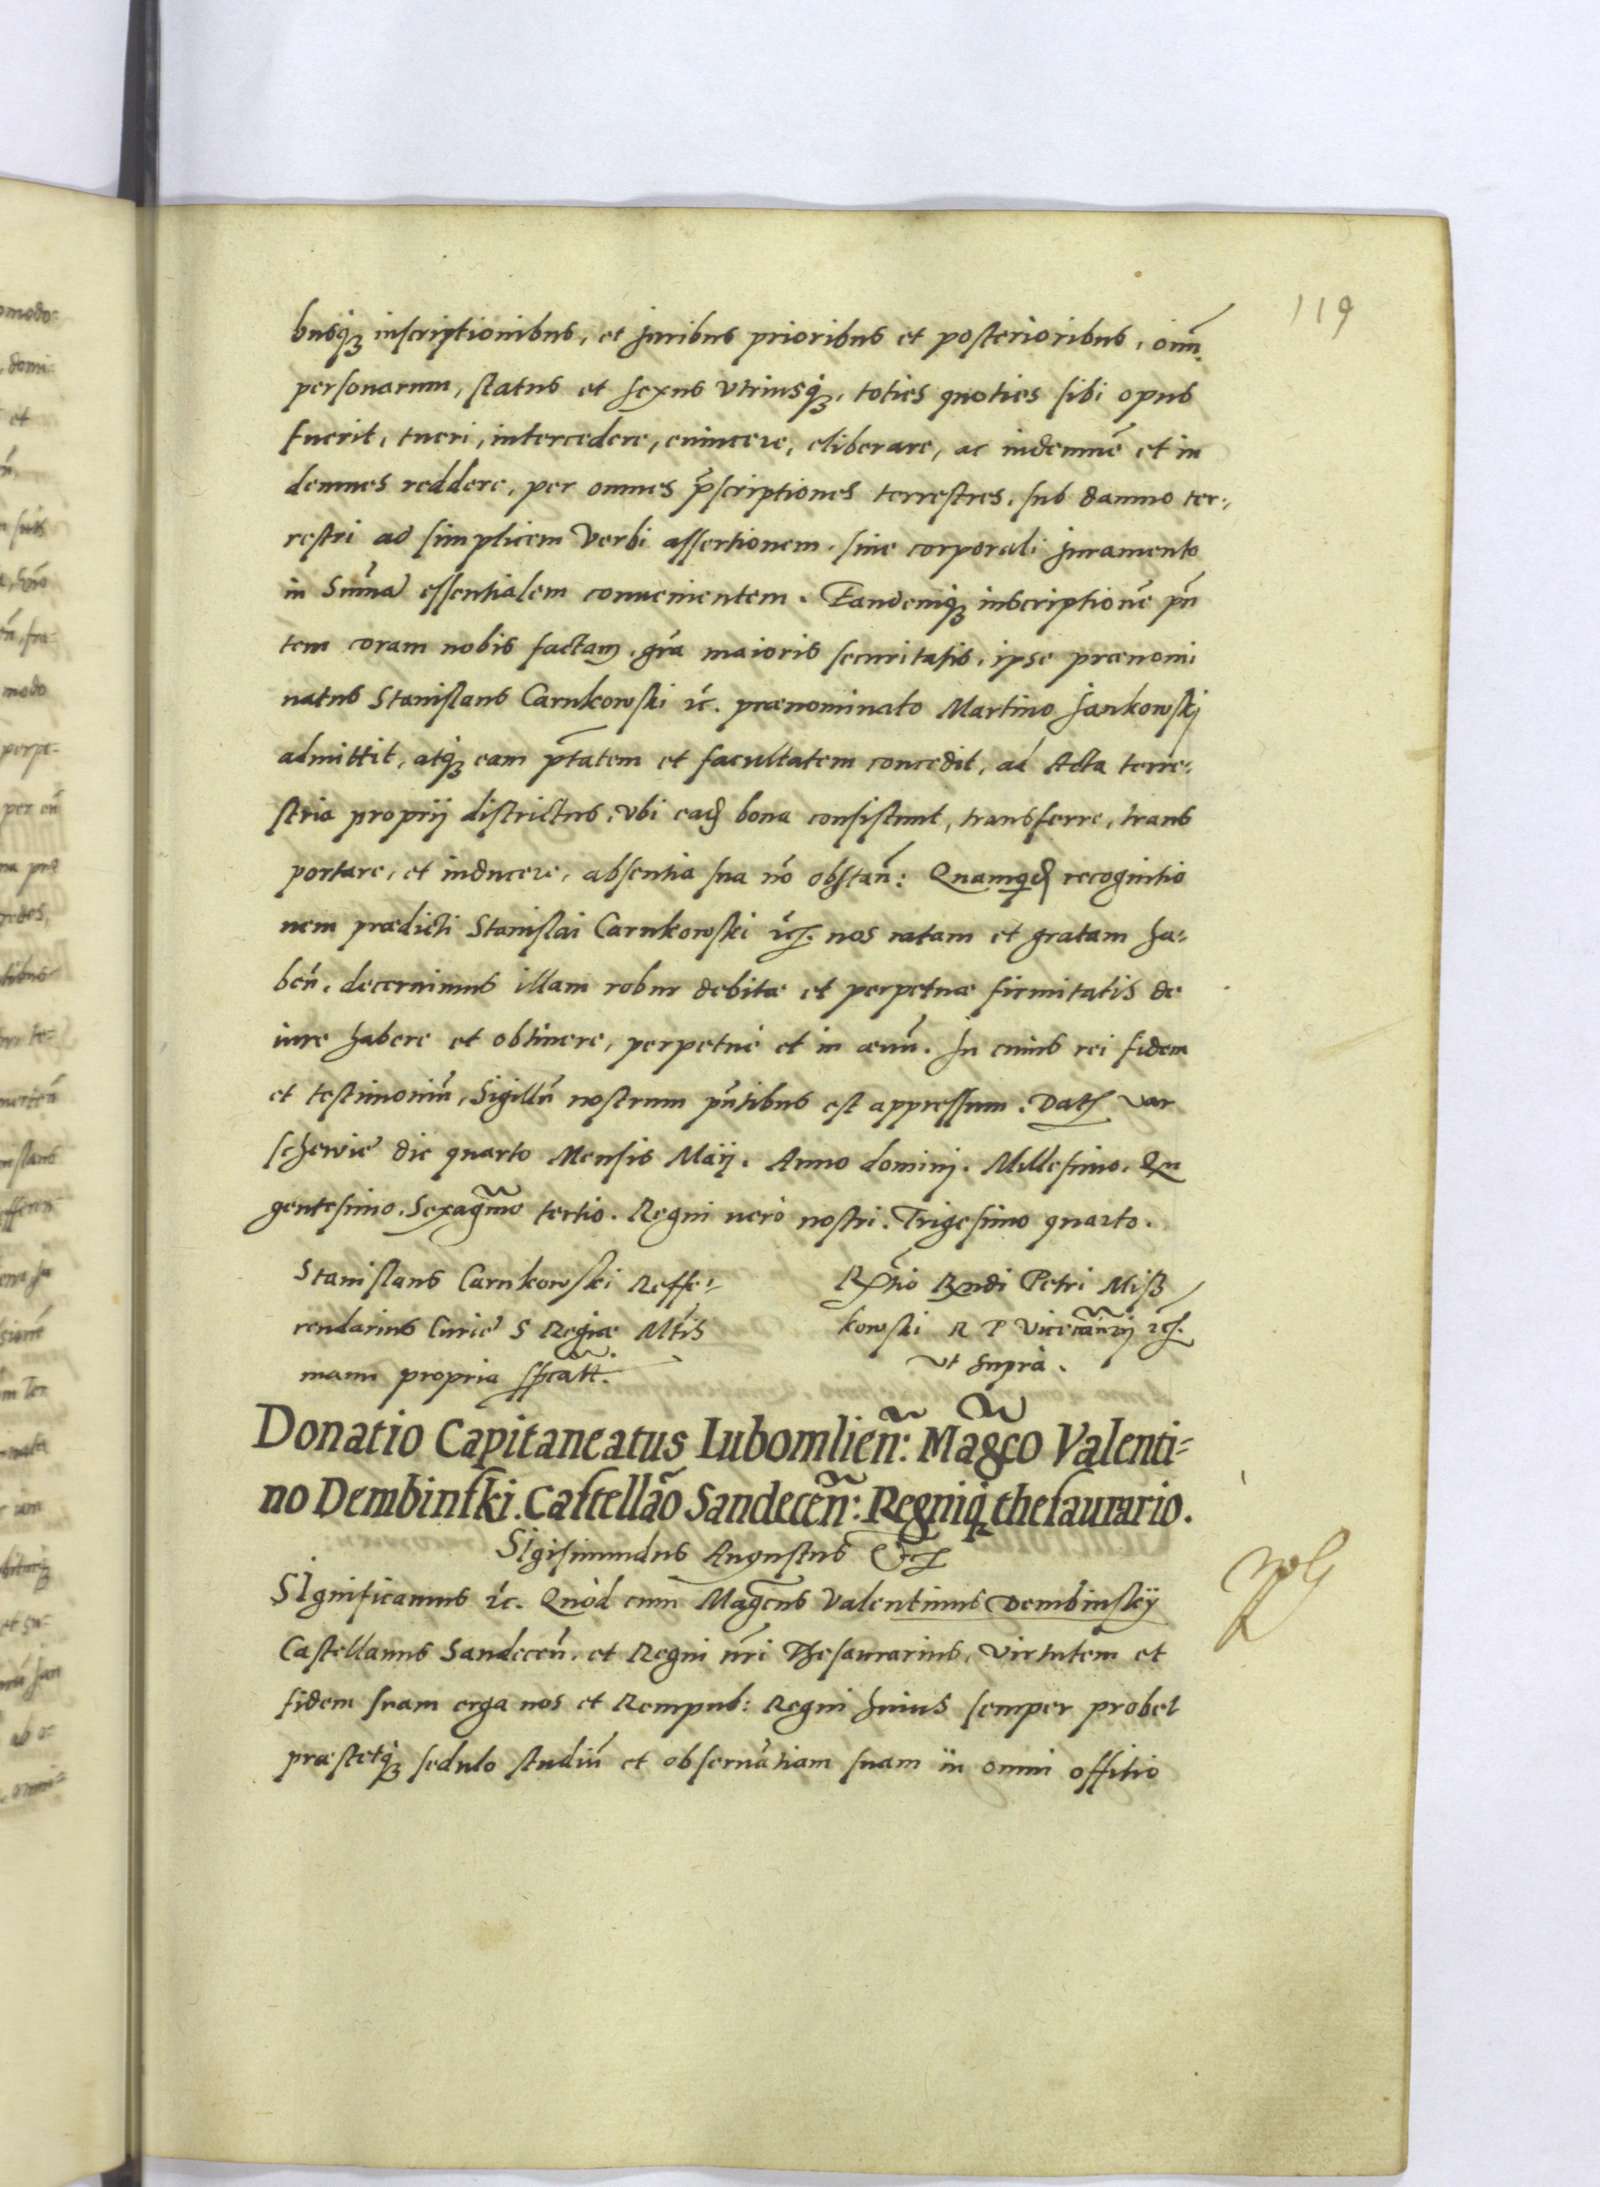 119
busq₃ inscriptionibus, et juribus prioribus et posterioribus, oim̃
personarum, status et sexus vtriusq₃, toties quoties sibi opus
fuerit, tueri, intercedere, euincere, eliberare, ac indemnẽ et in
demnes reddere, per omnes p̃scriptiones terrestres, sub damno ter-
restri ad simplicem verbi assertionem, sine corporali juramento
in Sum̃a essentialem conuenientem. Eandemq₃ inscriptionẽ pñ
tem coram nobis factam, grã maioris securitatis, ipse prænomi
natus Stanislaus Carnkowski ĩc. prænominato Martino Jankowskj
admittit, atq₃ eam ptãtem et facultatem concedit, ad Acta terre-
stria proprij districtus, vbi ead bona consistunt, transferre, trans
portare, et inducere, absentia sua nõ obstañ: Quamquid recognitio
nem prædicti Stanislai Carnkowski ĩc. nos ratam et gratam ha-
beñ, decernimus illam robur debitæ et perpetuæ firmitatis de
iure habere et obtinere, perpetuè et in æuũ. In cuius rei fidem
et testimoniũ, Sigillũ nostrum pñtibus est appressum. Dat var
scheviæ die quarto Mensis Maij. Anno dominj. Millesimo. Qu
gentesimo. Sexagm̃o tertio. Regni uerò nostri. Trigesimo quarto.
Stanislaus Carnkowski Reffe-
rendarius Curiæ S Regiæ Mtis
manu propria sst.
Rltĩo Rndi Petri Miß
kowski R P Vicecancrij ĩc.
vt suprà.
Donatio Capitaneatus Lubomlieñ: Mag̃co Valenti-
no Dembinski. Castellão Sandeceñ: Regniq₃ thesaurario.
SIgismundus Augustus &c
SIgnificamus ĩc. Quòd cum Mag̃cus Valentinus Dembinskÿ
Castellanus Sandeceñ. et Regni nr̃i Thesaurarius, virtutem et
fidem suam erga nos et Rempub: Regni huius semper probet
præstetq₃ sedulo studiũ et obseruãtiam suam in omni offitio